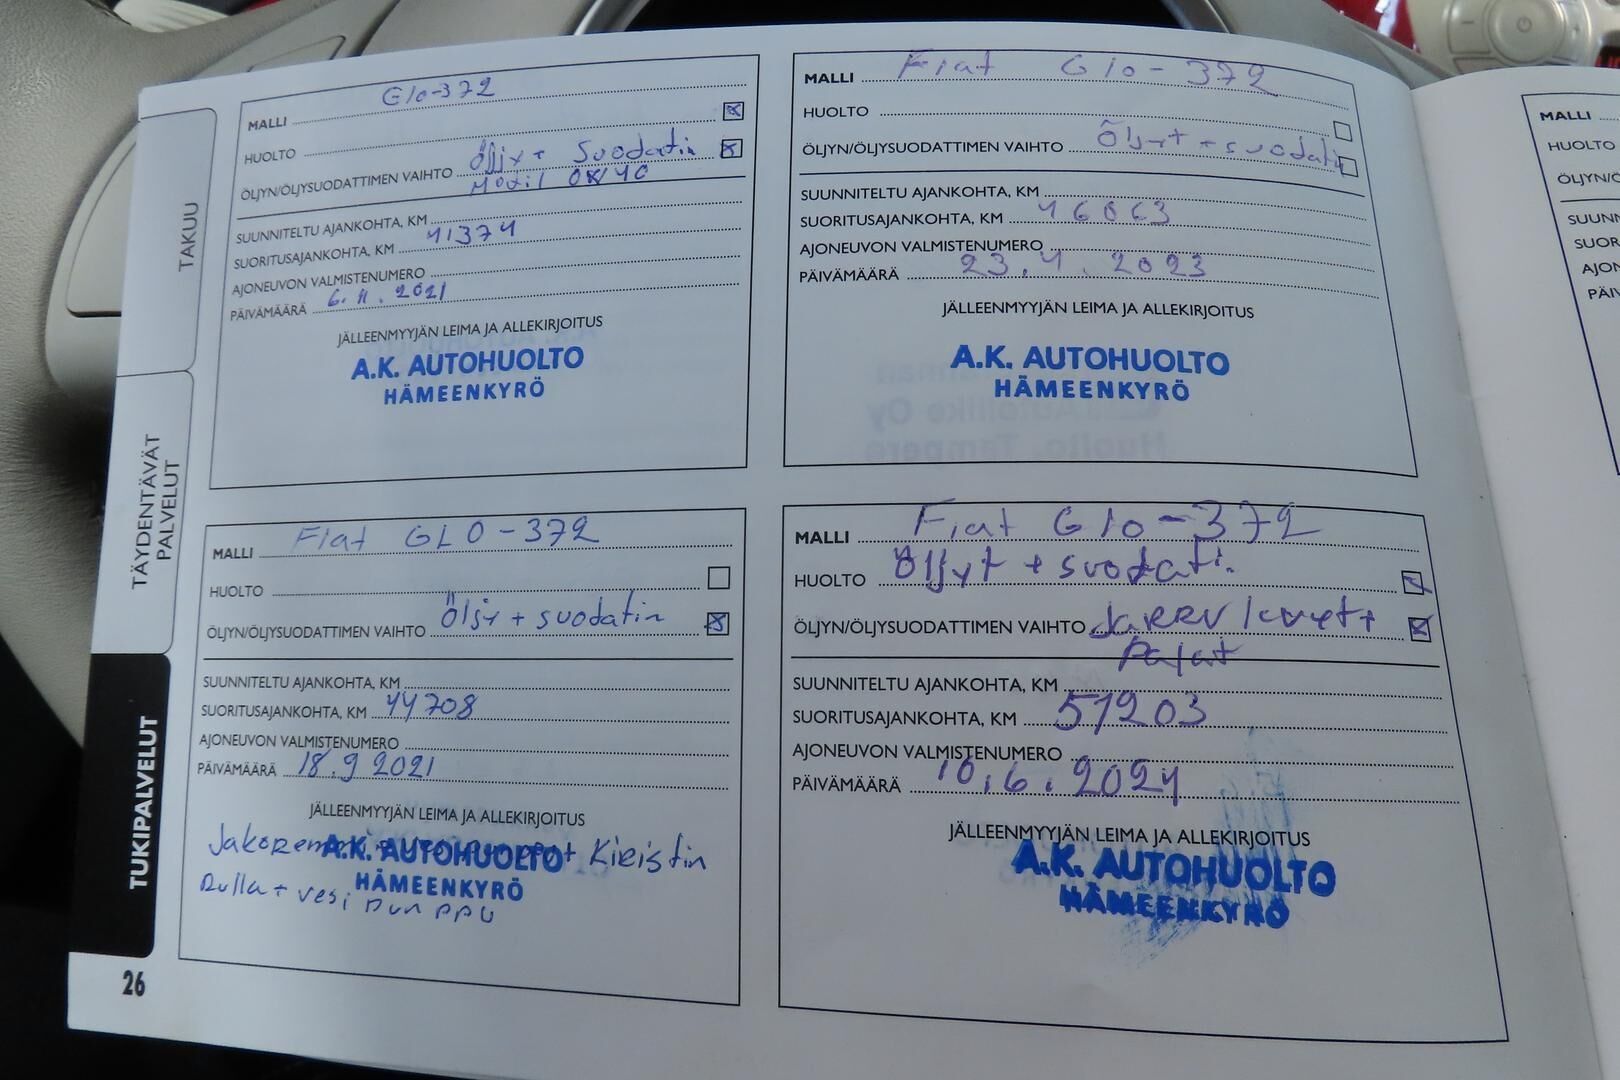 TAKUU
TÄYDENTÄVÄT
PALVELUT
TUKIPALVELUT
26
MALLI Glo-372
HUOLTO
ÖLJYN/ÖLJYSUODATTIMEN VAIHTO Öljy + Suodatin
SUUNNITELTU AJANKOHTA, KM
SUORITUSAJANKOHTA, KM 41374
AJONEUVON VALMISTENUMERO
PÄIVÄMÄÄRÄ 6.11.2021
JÄLLEENMYYJÄN LEIMA JA ALLEKIRJOITUS
A.K. AUTOHUOLTO
HÄMEENKYRÖ
MALLI Fiat Glo-372
HUOLTO
ÖLJYN/ÖLJYSUODATTIMEN VAIHTO Öljyt + suodati
SUUNNITELTU AJANKOHTA, KM
SUORITUSAJANKOHTA, KM 46063
AJONEUVON VALMISTENUMERO
PÄIVÄMÄÄRÄ 23.4.2023
JÄLLEENMYYJÄN LEIMA JA ALLEKIRJOITUS
A.K. AUTOHUOLTO
HÄMEENKYRÖ
MALLI Fiat GLO-372
HUOLTO
ÖLJYN/ÖLJYSUODATTIMEN VAIHTO Öljy + suodatin
SUUNNITELTU AJANKOHTA, KM
SUORITUSAJANKOHTA, KM 44708
AJONEUVON VALMISTENUMERO
PÄIVÄMÄÄRÄ 18.9 2021
JÄLLEENMYYJÄN LEIMA JA ALLEKIRJOITUS
Kiristin
A.K. AUTOHUOLTO
HÄMEENKYRÖ
Rulla + vesi pumppu
MALLI Fiat Glo-372
HUOLTO Öljyt + suodati.
ÖLJYN/ÖLJYSUODATTIMEN VAIHTO Jarru levyt +
Palat
SUUNNITELTU AJANKOHTA, KM
SUORITUSAJANKOHTA, KM 51203
AJONEUVON VALMISTENUMERO
PÄIVÄMÄÄRÄ 10.6.2024
JÄLLEENMYYJÄN LEIMA JA ALLEKIRJOITUS
A.K. AUTOHUOLTO
HÄMEENKYRÖ
MALLI
HUOLTO